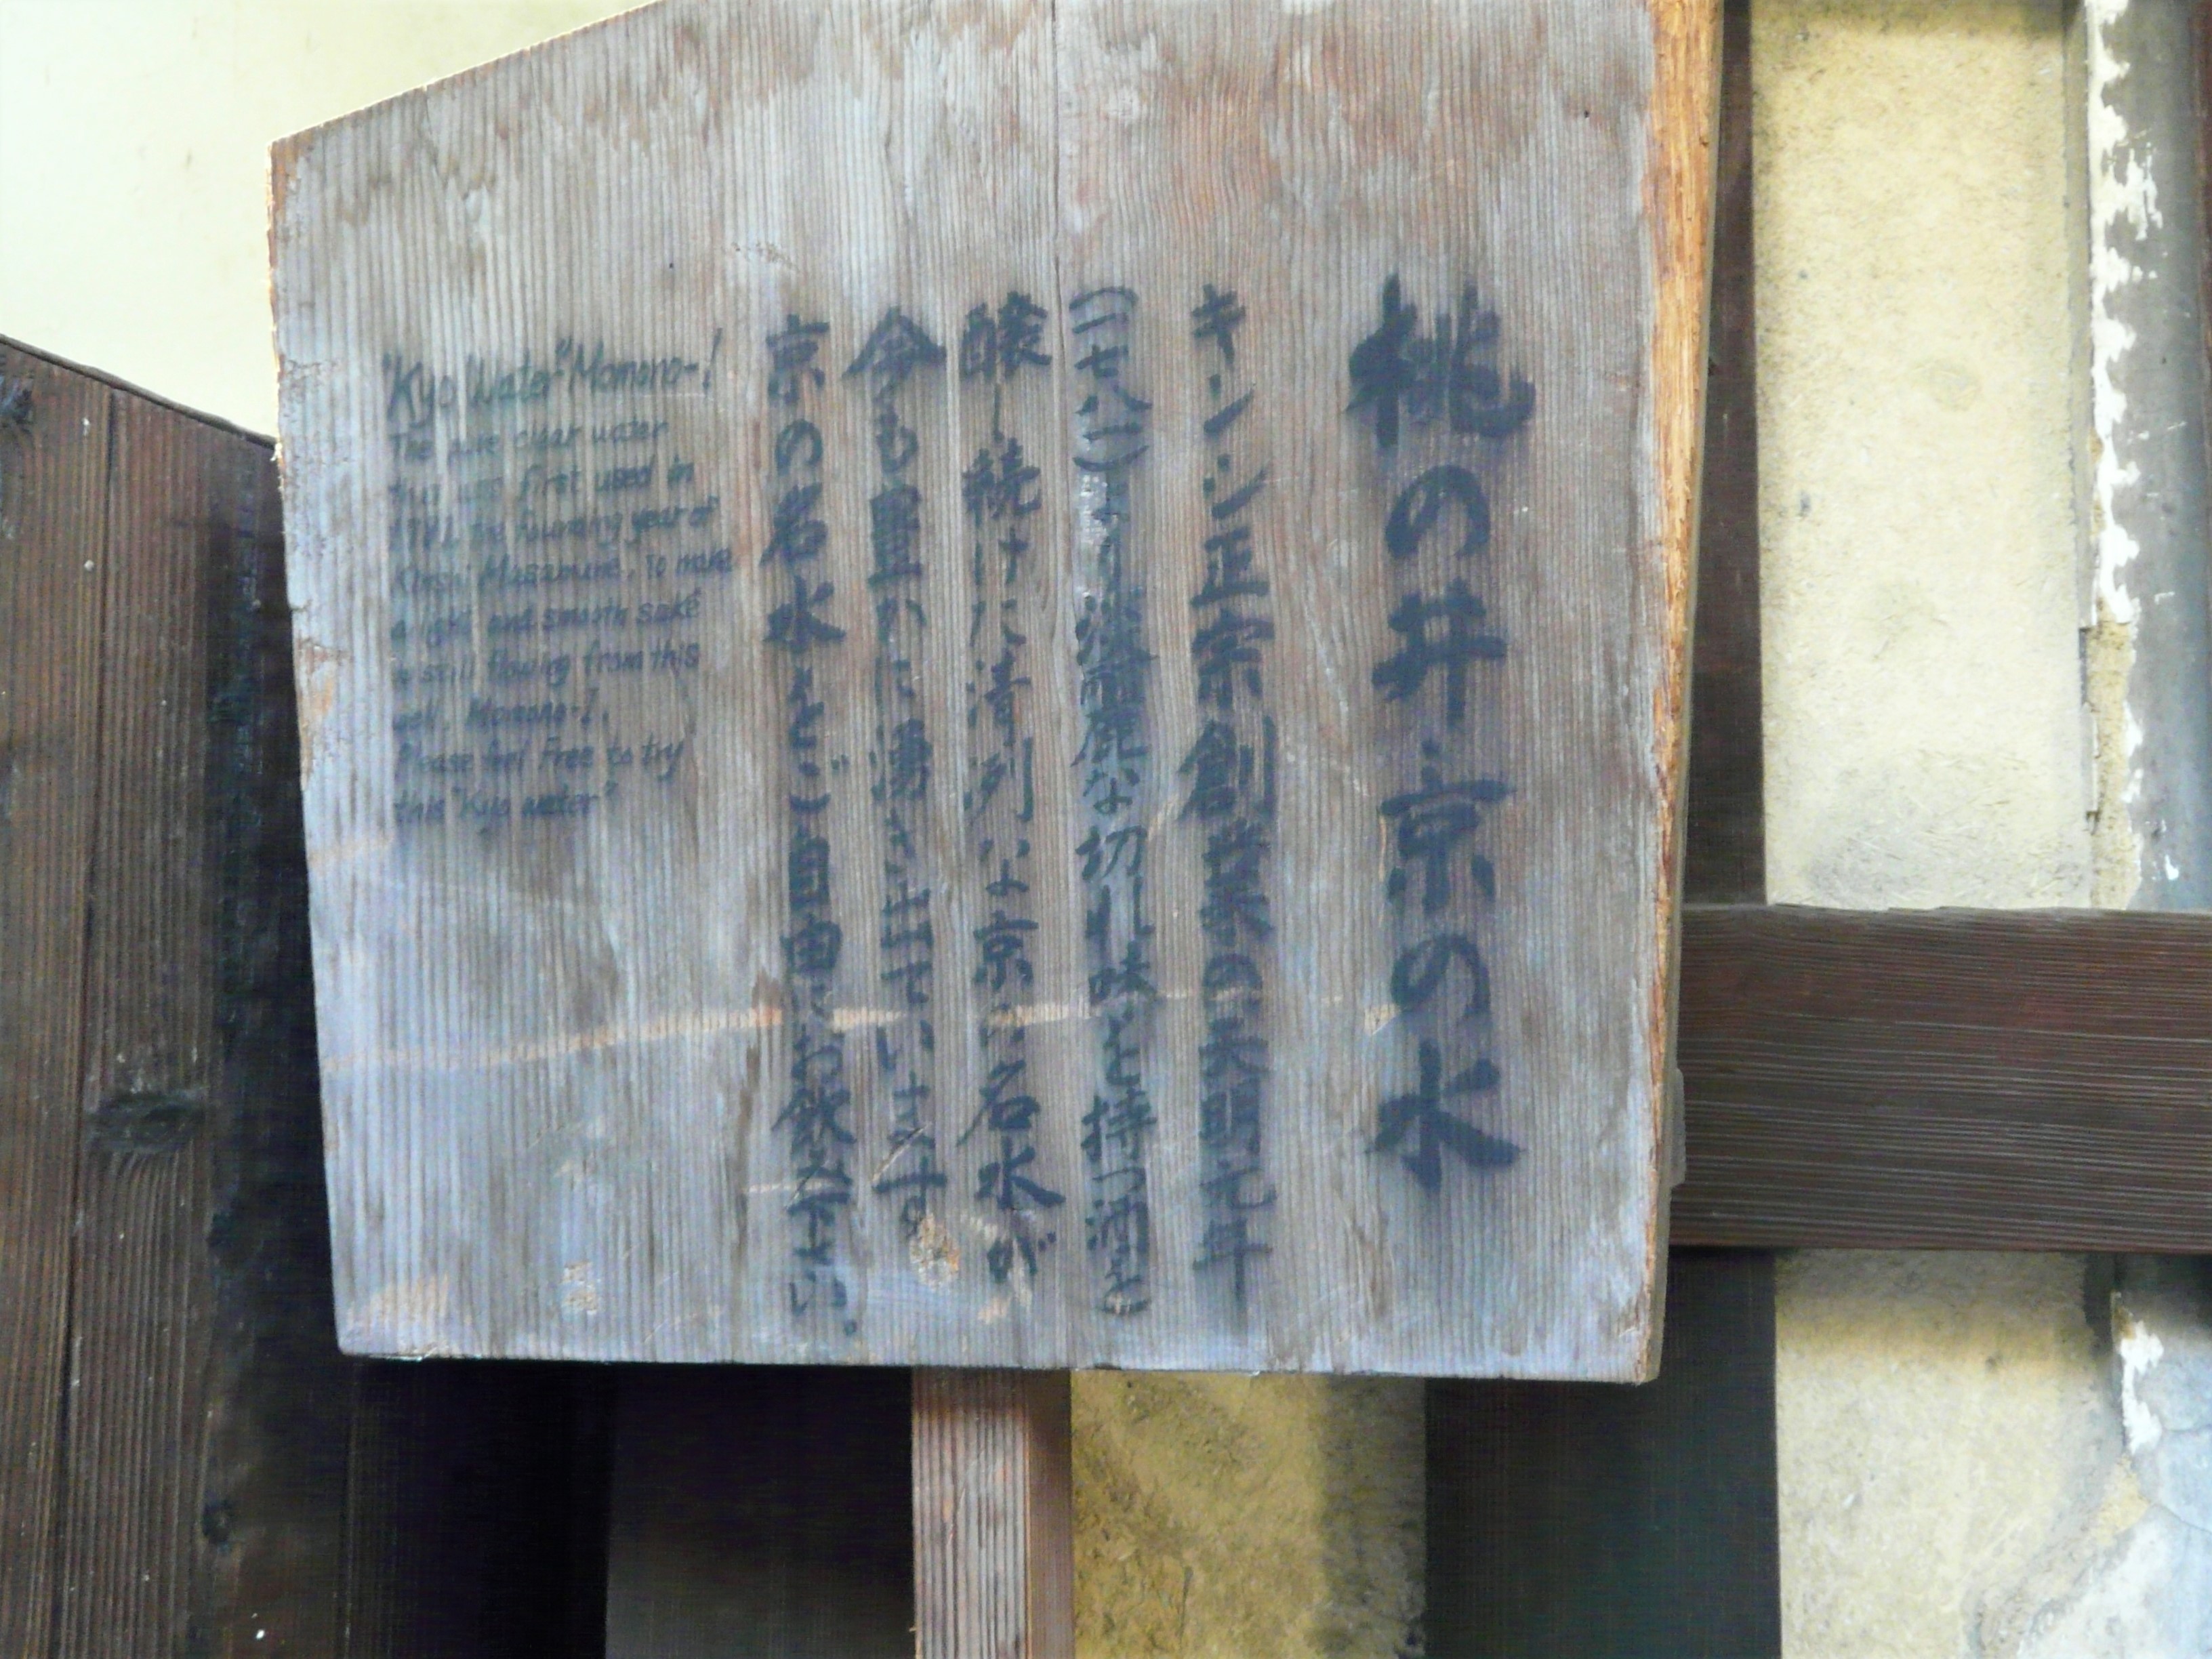 桃の井・京の水
キンシ正宗創業の天明元年
(一七八一)より淡麗な切れ味を持つ酒を
醸し続けた清冽な京の名水が
今も豊かに湧き出ています
京の名水をご自由にお飲み下さい。
"Kyo Water" Momono-I
The pure clear water
that was first used in
1781, the founding year of
Kinshi Masamune, to make
a light and smooth sake
is still flowing from this
well, Momono-I.
Please feel Free to try
this "Kyo water"